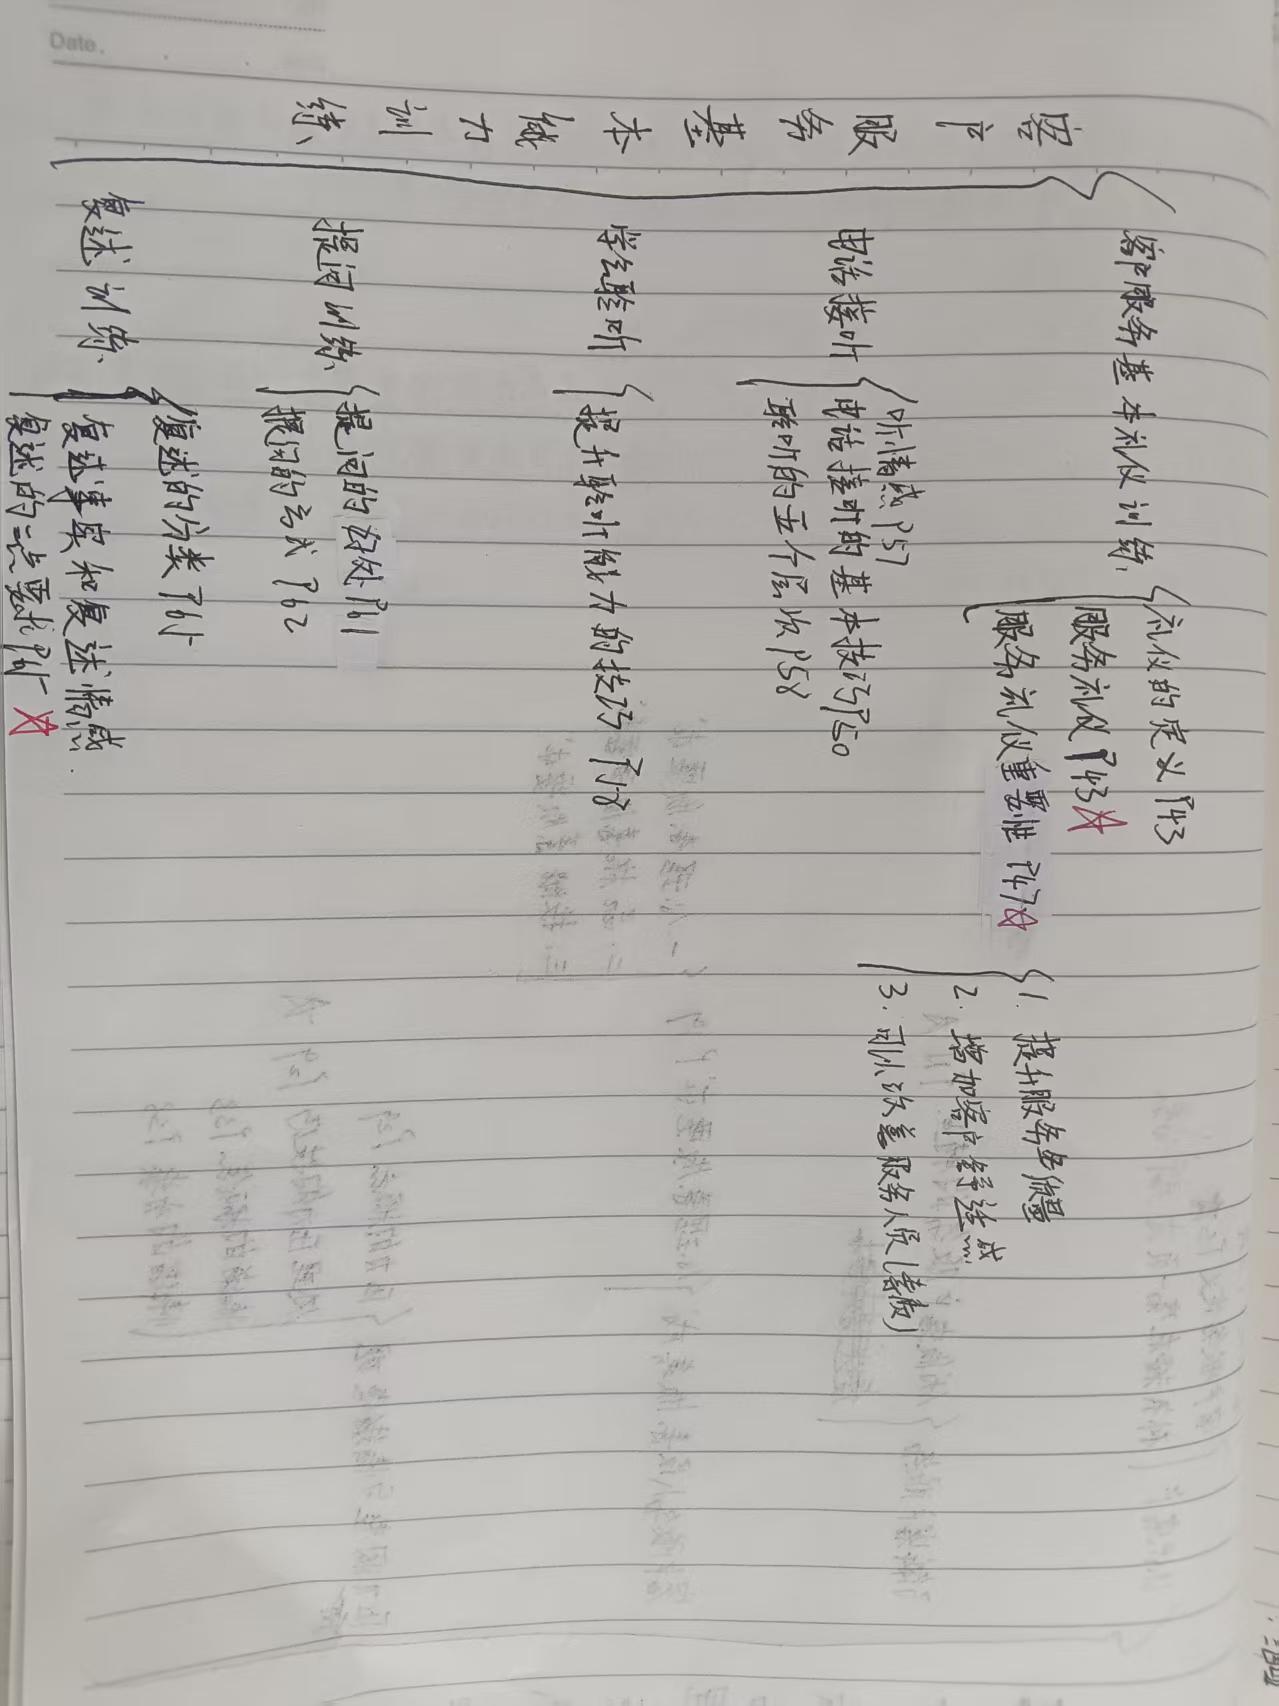 Date.
客户服务基本能力训练
客户服务基本礼仪训练
礼仪的定义 P43
服务礼仪 P43☆
服务礼仪重要性 P47☆
1. 提升服务质量
2. 增加客户舒适感
3. 可以改善服务人员(素质)
电话接听
听情感 P57
电话接听的基本技巧P50
聆听的五个层次P58
学会聆听
提升聆听能力的技巧 P58
提问训练
提问的好处P61
提问的方式 P62
复述训练
复述的分类 P65
复述事实和复述情感
复述的二点要求P65 ☆